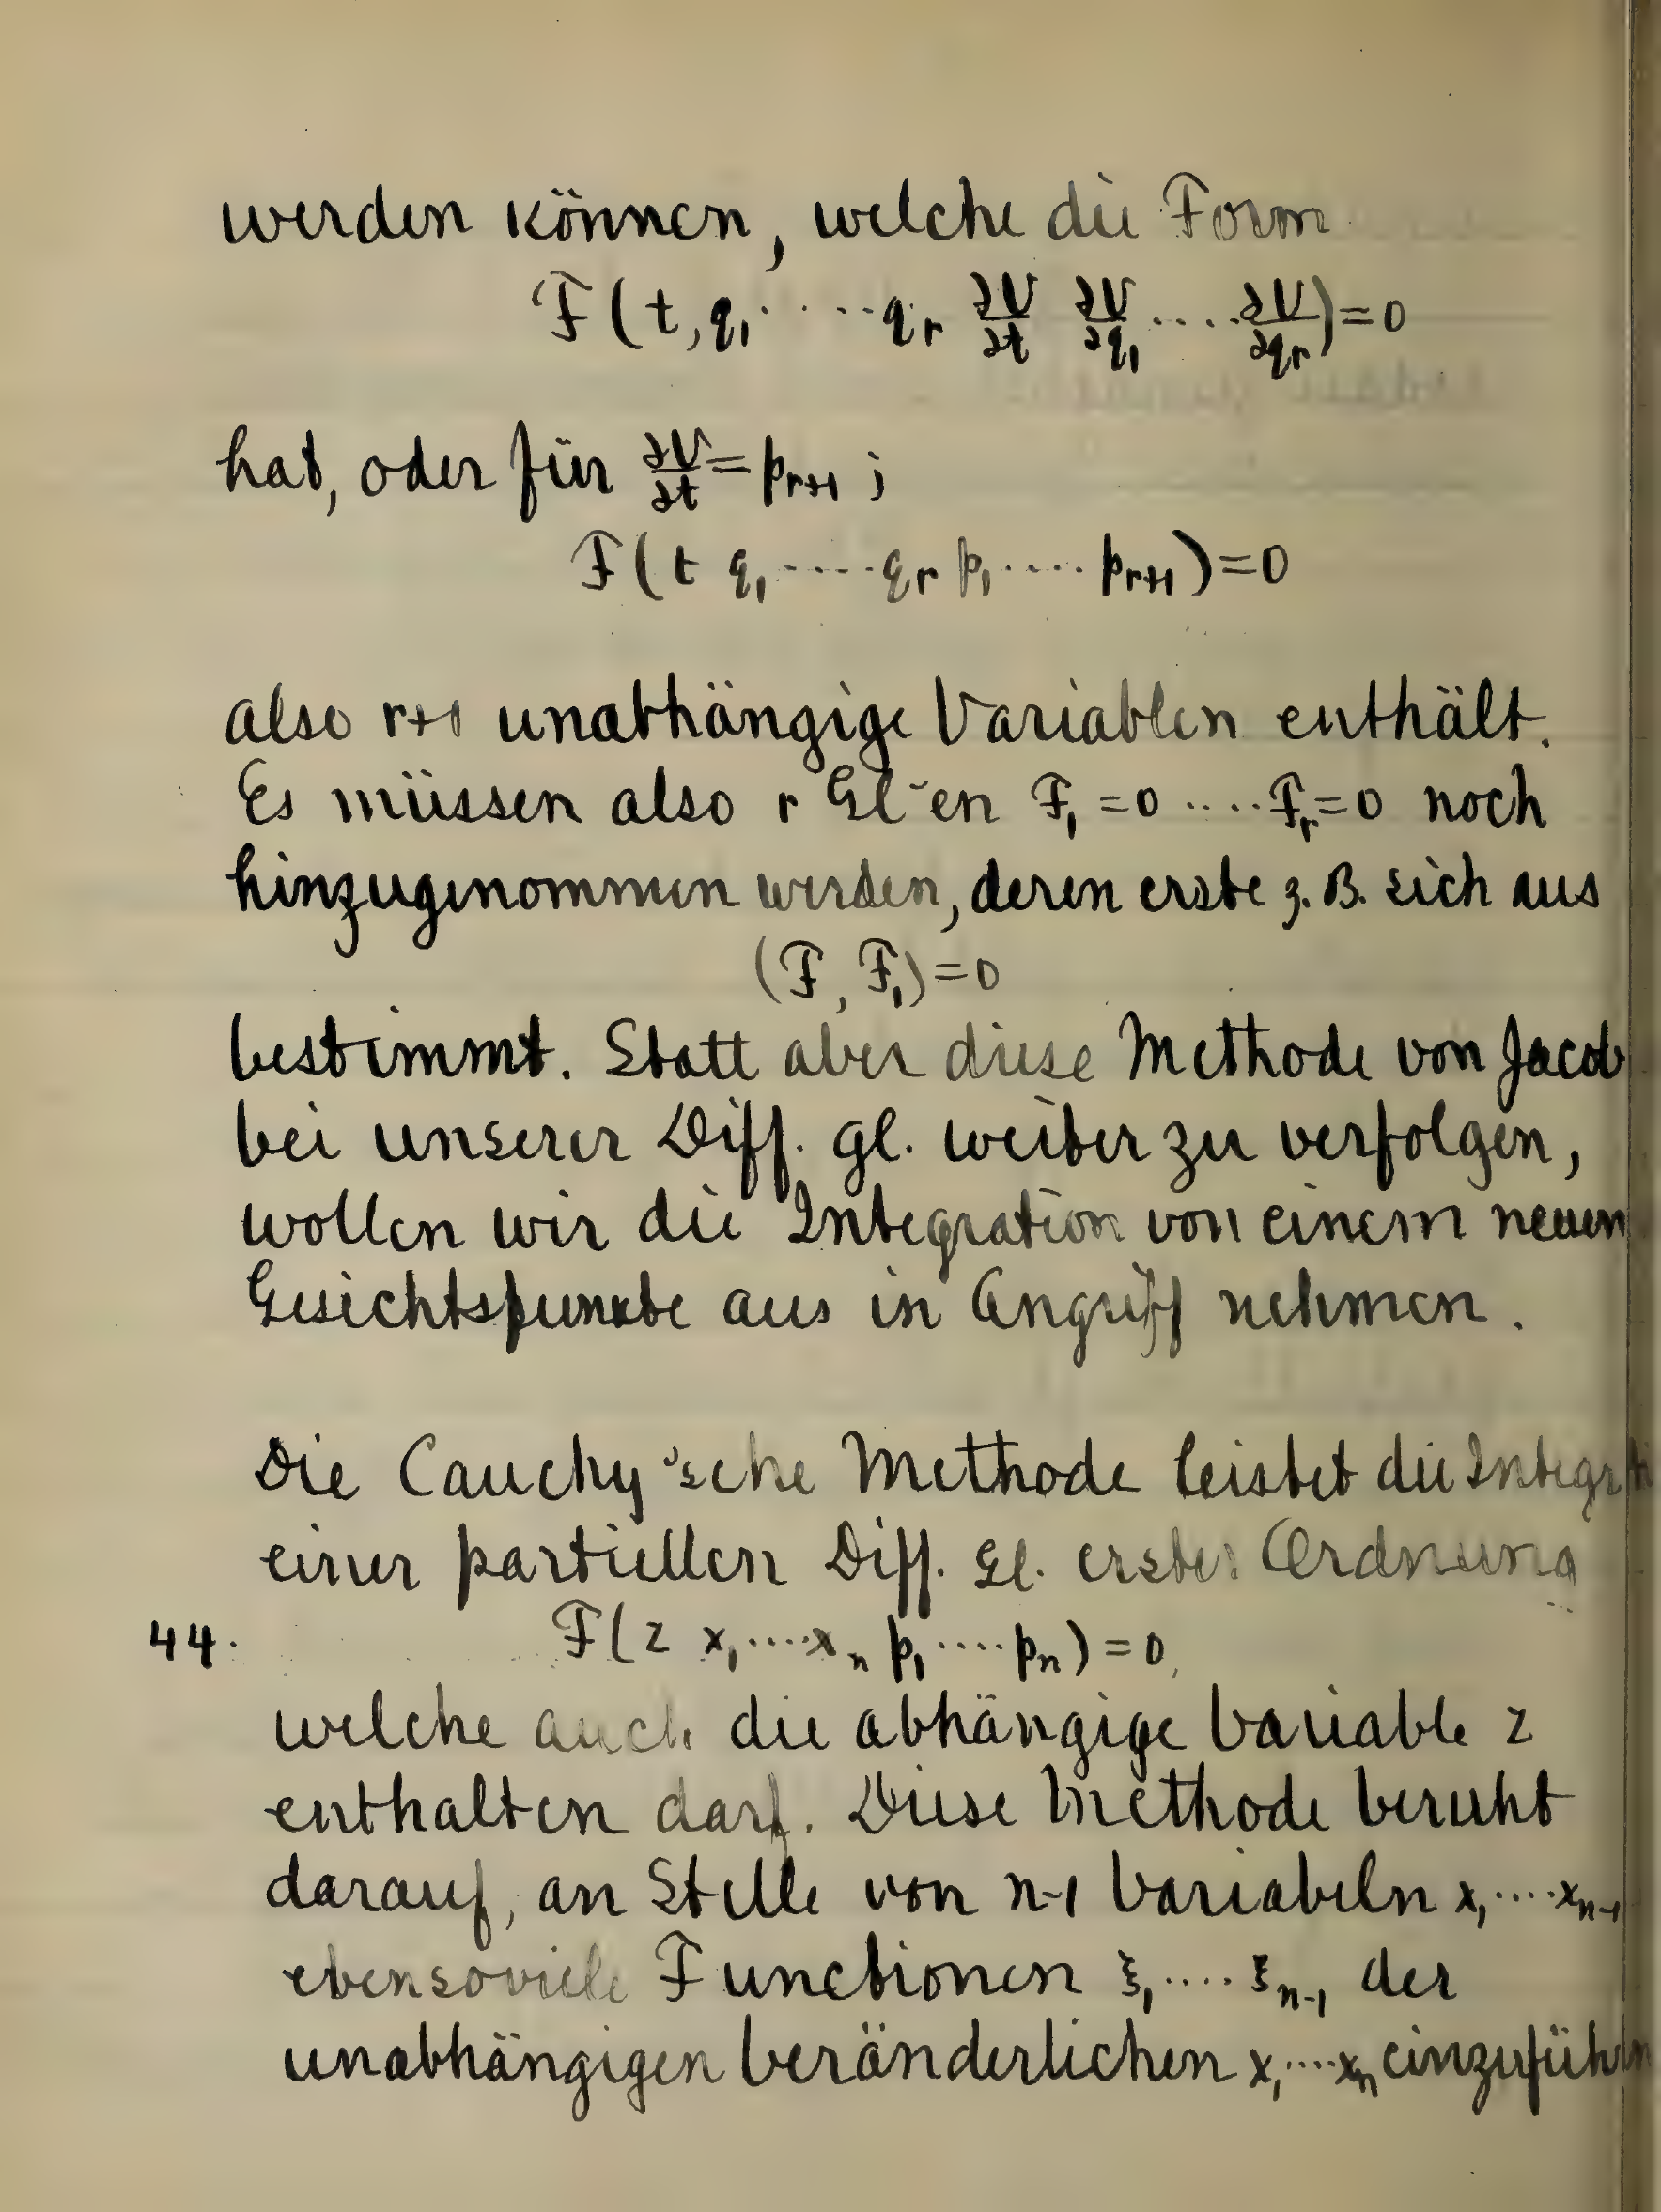 werden können, welche die Form
F(t, q₁ ····· qᵣ ∂V/∂t ∂V/∂q₁ ···· ∂V/∂qᵣ) = 0
hat, oder für ∂V/∂t = pᵣ₊₁ ;
F(t q₁ ····· qᵣ p₁ ····· pᵣ₊₁) = 0
also r+1 unabhängige Variablen enthält.
Es müssen also r Gl-en F₁ = 0 ····· Fᵣ = 0 noch
hinzugenommen werden, deren erste z. B. sich aus
(F, F₁) = 0
bestimmt. Statt aber diese Methode von Jacob
bei unserer Diff. gl. weiter zu verfolgen,
wollen wir die Integration von einem neuen
Gesichtspunkte aus in Angriff nehmen.
Die Cauchy'sche Methode leistet die Integrati
einer partiellen Diff. Gl. erster Ordnung
44. F(z x₁ ····· xₙ p₁ ····· pₙ) = 0,
welche auch die abhängige Variable z
enthalten darf. Diese Methode beruht
darauf, an Stelle von n-1 Variabeln x₁ ····· xₙ₋₁
ebensoviele Functionen ξ₁ ····· ξₙ₋₁ der
unabhängigen Veränderlichen x₁ ····· xₙ einzuführen